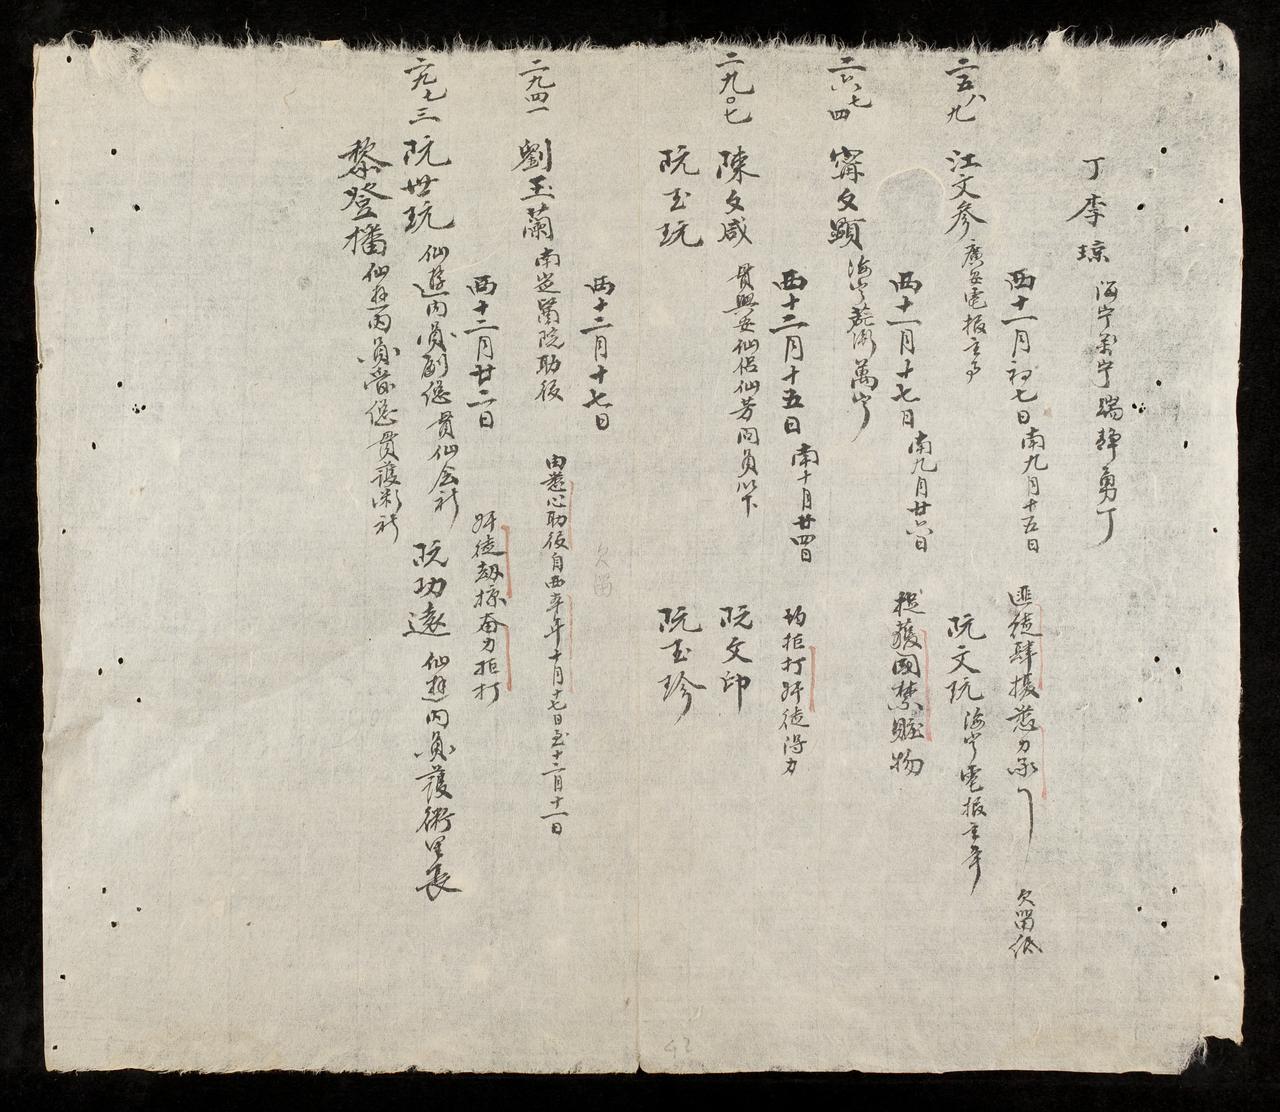 丁李琼 海宁萬宁瑞靜勇丁
二五八九
西十一月初七日 南九月十五日 匪徒肆擾 欠留低
江文參 廣安電报主事 阮文玩 海宁電报主事
二六七四
西十一月十七日 南九月廿六日 捉獲國禁賍物
甯文顯 海宁 萬宁
二九〇七
西十二月十五日 南十月廿四日 均拒打奸徒得力
陳文咸 貫興安仙侶仙芳同員以下 阮文印
阮玉玩 阮玉珍
二九四一
西十二月十七日 欠留
劉玉蘭 南定醫院助役 由慈心助役自西本年十月十七日至十二月十一日
二九七三
西十二月廿二日 奸徒刼掠奮力拒打
阮世玩 仙遊内員副總貫仙会社 阮功遠 仙遊内員護術里長
黎登播 仙遊内員當總貫護術社
42